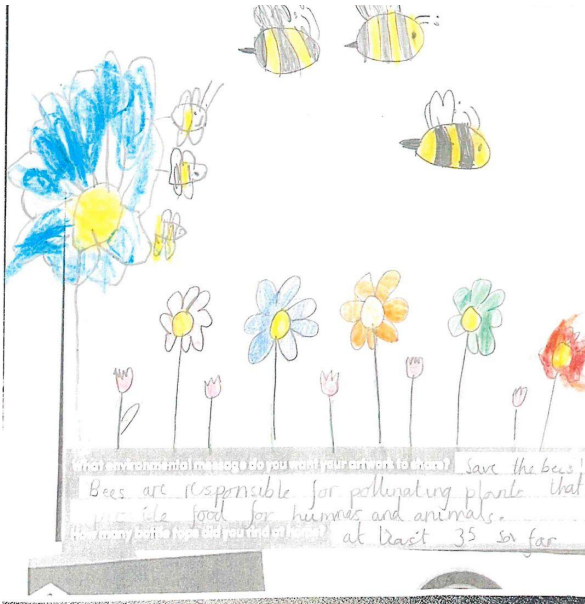 What environmental message do you want your artwork to share? Save the bees!
Bees are responsible for pollinating plants that
provide food for humans and animals.
How many bottle tops did you find at home? at least 35 so far